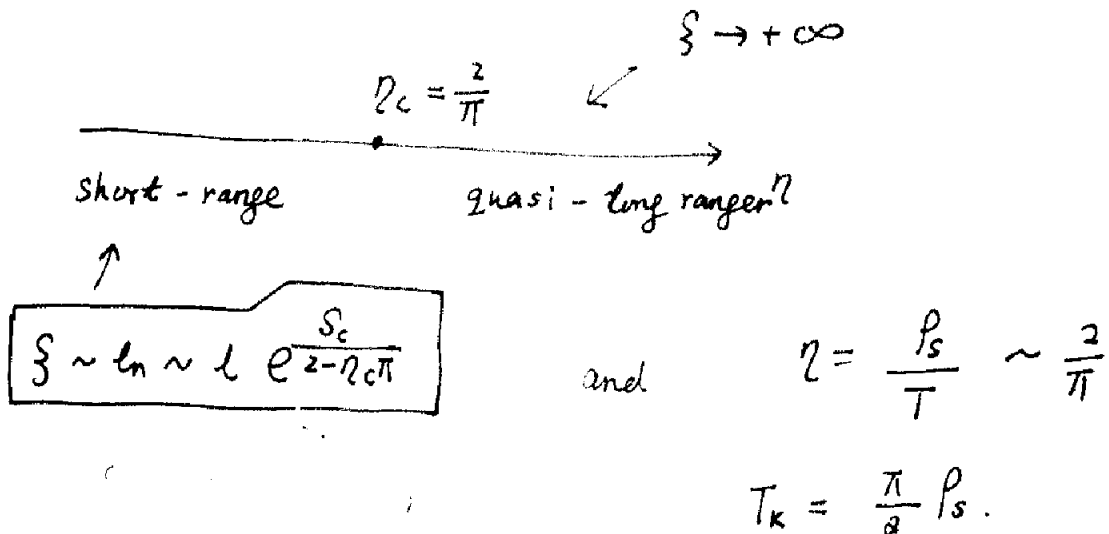 ξ → +∞
η_c = 2/π
short - range
quasi - long ranger η
ξ ~ l_n ~ l e^{S_c/(2-η_cπ)} and η = ρ_s/T ~ 2/π
T_K = π/2 ρ_s.